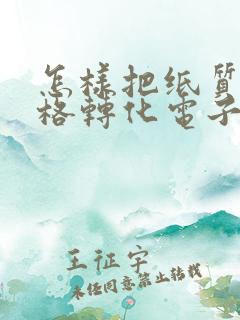 怎樣把纸質
格轉化電子
王征宇
未经同意禁止转载